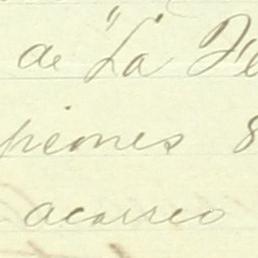 de "La Fe
peones 8
acarreo